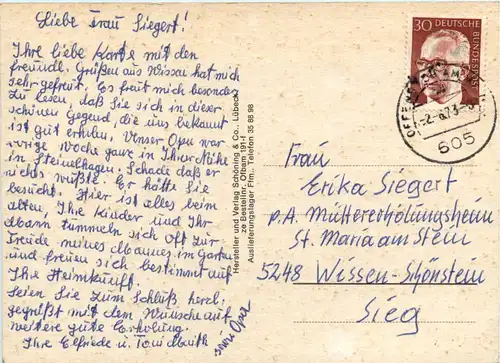 Liebe Frau Siegert!
Ihre liebe Karte mit den
freundl. Grüßen aus Wissen hat mich
sehr gefreut. Es freit mich besonders
zu lesen, daß Sie sich in dieser
schönen Gegend, die uns bekannt
ist gut erholen. Unser Opa war
vorige Woche ganz in Ihrer Nähe
in Steinelhagen. Schade daß er
nichts wußte. Er hätte Sie
besucht. Hier ist alles beim
alten, Ihre Kinder und Ihr
Mann tummeln sich oft zur
Freude meines Mannes im Garten
und freuen sich bestimmt auf
Ihre Heimkunft.
Seien Sie zum Schluß herzl.
gegrüßt mit dem Wunsche auf
weitere gute Erholung.
Ihre Elfriede u. Toni
sowie Opa
Hersteller und Verlag Schöning & Co., Lübeck
ze Bestellnr. Ofbam 191-I
Auslieferungslager Ffm., Telefon 35 86 98
30 DEUTSCHE
BUNDESPOST
OFFENBACH
-2.-6.73-
605
Frau
Erika Siegert
p.A. Müttererholungsheim
St. Maria am Stein
5248 Wissen-Schönstein
Sieg